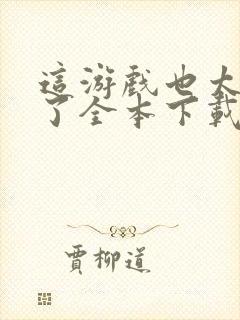 這游戲也太
了全本下載
賈柳道